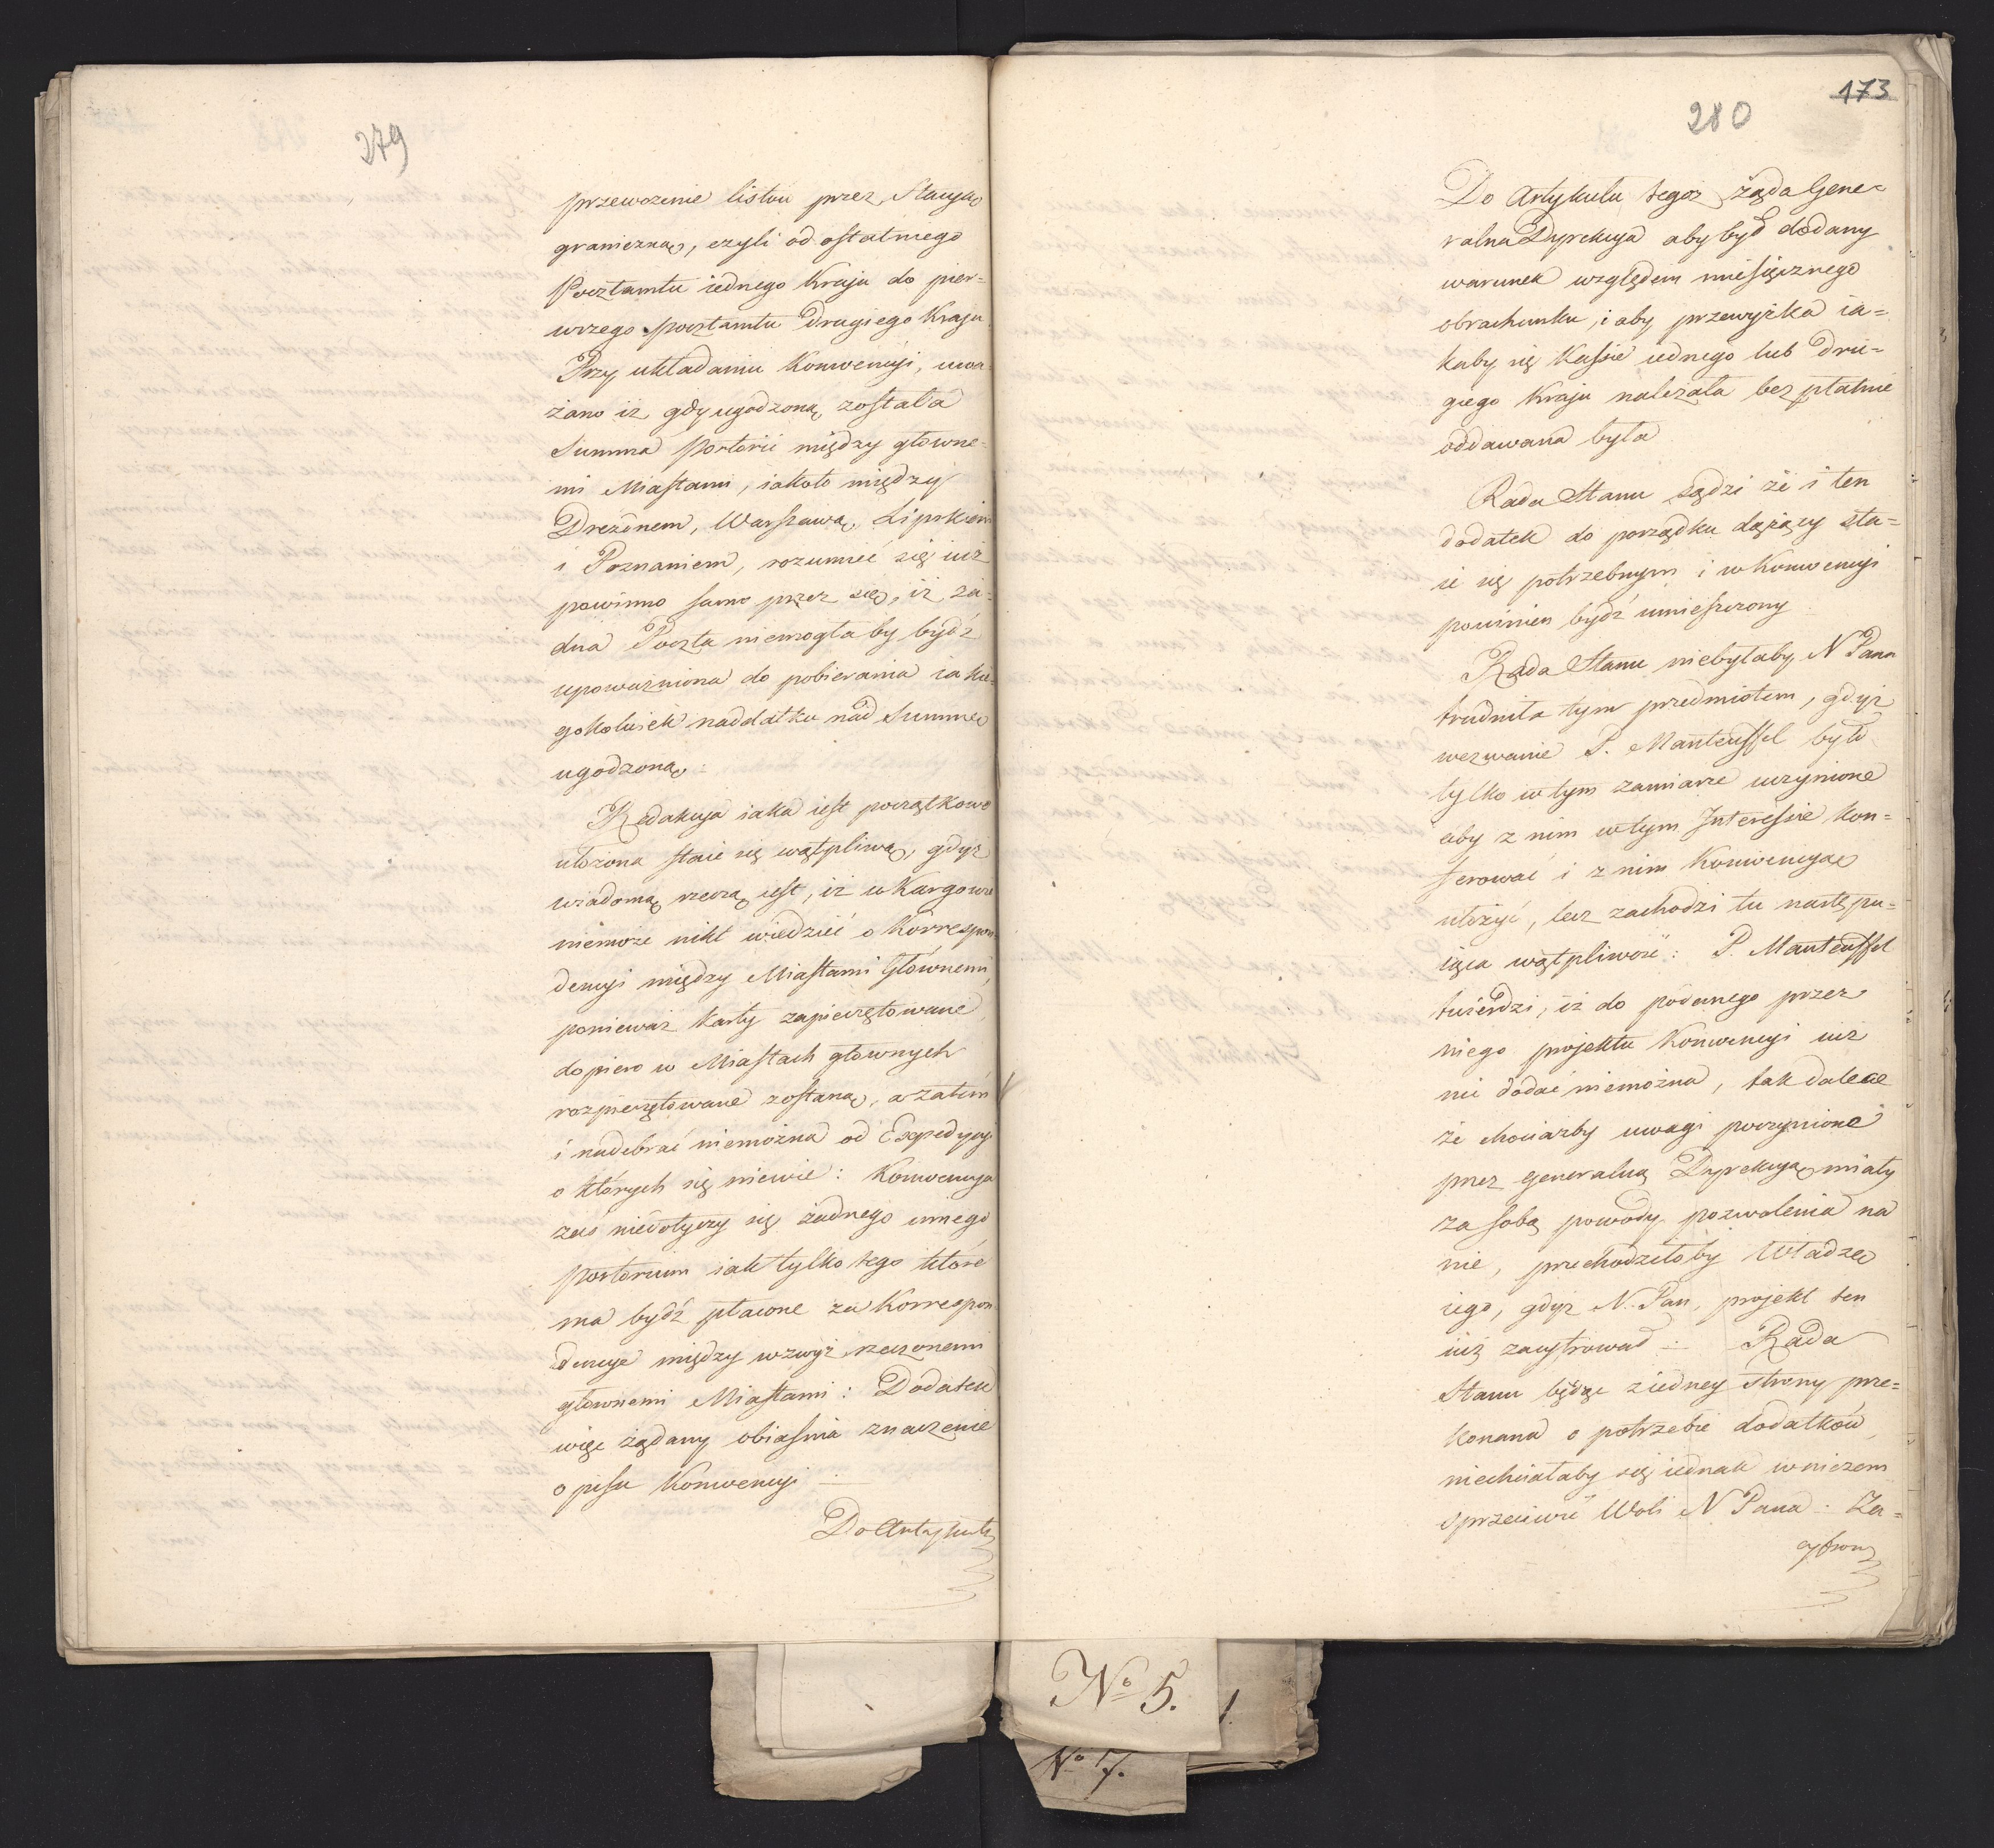 279
przewożenie listów przez Stacyą
graniczną, czyli od ostatniego
Pocztamtu iednego Kraju do pier-
wszego pocztamtu Drugiego Kraju.
Przy układaniu Konwencyi, uwa-
żano iż gdy ugodzoną została
Summa Portorii między główne-
mi Miastami, iakoto między
Dreznem, Warszawą, Lipskiem
i Poznaniem, rozumieć się iuż
powinno samo przez się, iż ża-
dna Poczta niemogłaby bydź
upoważniona do pobierania iakie-
gokolwiek naddatku nad Summę
ugodzoną.
Redakcya iaka iest początkowo
ułożona staie się wątpliwą, gdyż
wiadomą rzeczą iest, iż w Kargowie
niemoże nikt wiedzieć o Korrespon-
dencyi między Miastami Głównemi,
ponieważ karty zapieczętowane
dopiero w Miastach głównych
rozpieczętowane zostaną, a zatem
i nadebrać niemożna od Expedycyi
o których się niewie: Konwencya
zaś niedotyczy się żadnego innego
portorium iak tylko tego które
ma bydź płacone za Korrespon-
dencye między wzwyż rzeczonemi
głownemi Miastami: Dodatek
więc żądany obiaśnia znaczenie
opisu Konwencyi
Do Artykułu
173
280
Do Artykułu tegoż żąda Gene-
ralna Dyrekcya aby był dodany
warunek względem miesięcznego
obrachunku, i aby przewyżka ia-
kaby się Kassie iednego lub Dru-
giego Kraju należała bezpłatnie
oddawana była
Rada Stanu sądzi że i ten
dodatek do porządku dążący sta-
ie się potrzebnym i w Konwencyi
powinien bydź umieszczony
Rada Stanu niebyłaby N Pana
trudniła tym przedmiotem, gdyż
wezwanie P. Manteuffel było
tylko w tym zamiarze uczynione
aby z nim w tym Interessie kon-
ferować i z nim Konwencyą
ułożyć, lecz zachodzi tu nastepu-
iąca wątpliwość: P. Manteuffel
twierdzi, iż do podanego przez
niego projektu Konwencyi iuż
nic dodać niemożna, tak dalece
że chociażby uwagi poczynione
przez generalną Dyrekcyą miały
za sobą powody pozwolenia na
nie, przechodziłoby Władzę
iego, gdyż N. Pan, projekt ten
iuż zacyfrował. Rada
Stanu będąc z iedney strony prze-
konana o potrzebie dodatków,
niechciałaby się iednak w niczem
sprzeciwić Woli N Pana. Za-
cyfrow
No 5.
1.
No 7.